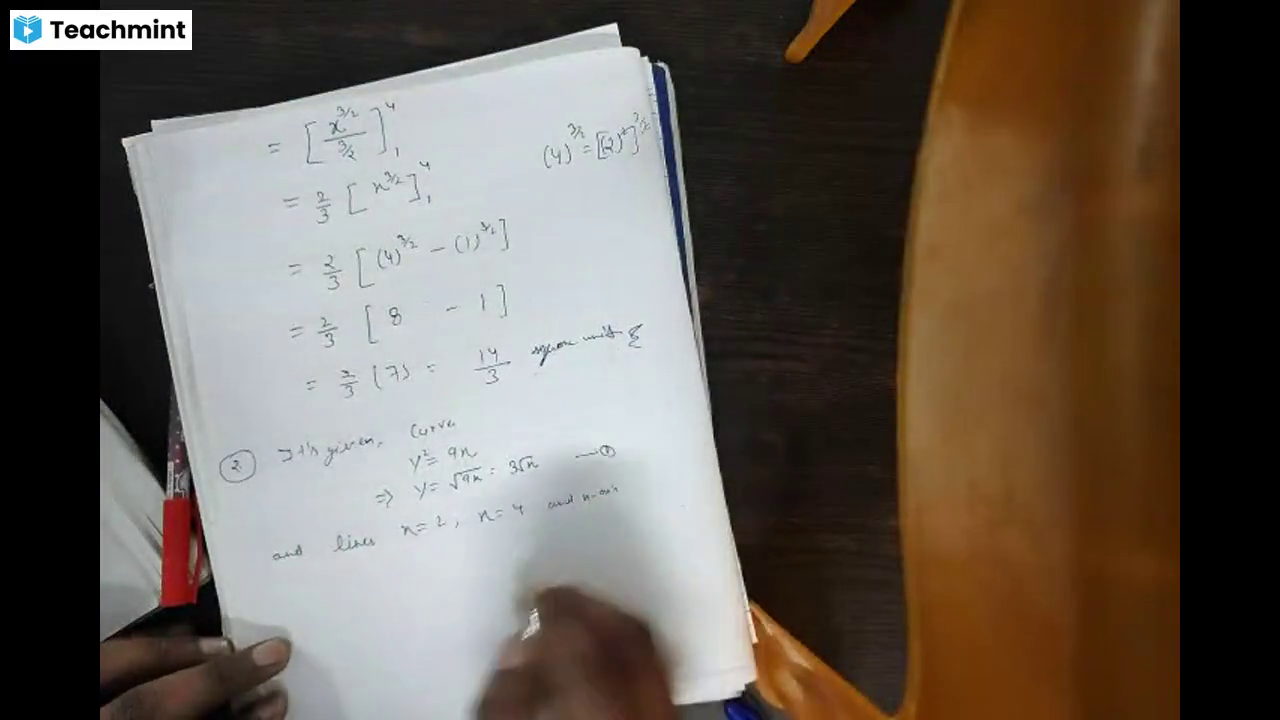 Teachmint
= [x^{3/2} / 3/2]_1^4
(4)^{3/2} = [(2)^2]^{3/2}
= 2/3 [x^{3/2}]_1^4
= 2/3 [(4)^{3/2} - (1)^{3/2}]
= 2/3 [8 - 1]
= 2/3 (7) = 14/3 square unit
2 It is given, Curve
y^2 = 9x
⇒ y = √9x = 3√x —①
and lines x = 2, x = 4 and x-axis